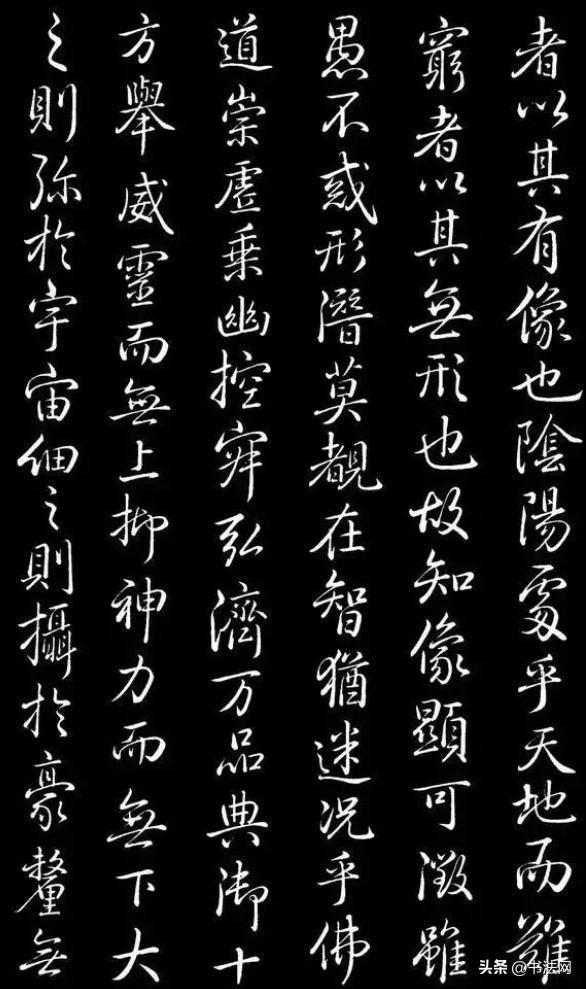 者以其有像也陰陽處乎天地而難
窮者以其無形也故知像顯可徵雖
愚不惑形潛莫覩在智猶迷況乎佛
道崇虛乗幽控寂弘濟万品典御十
方舉威靈而無上抑神力而無下大
之則弥於宇宙細之則攝於豪釐無
头条@书法网